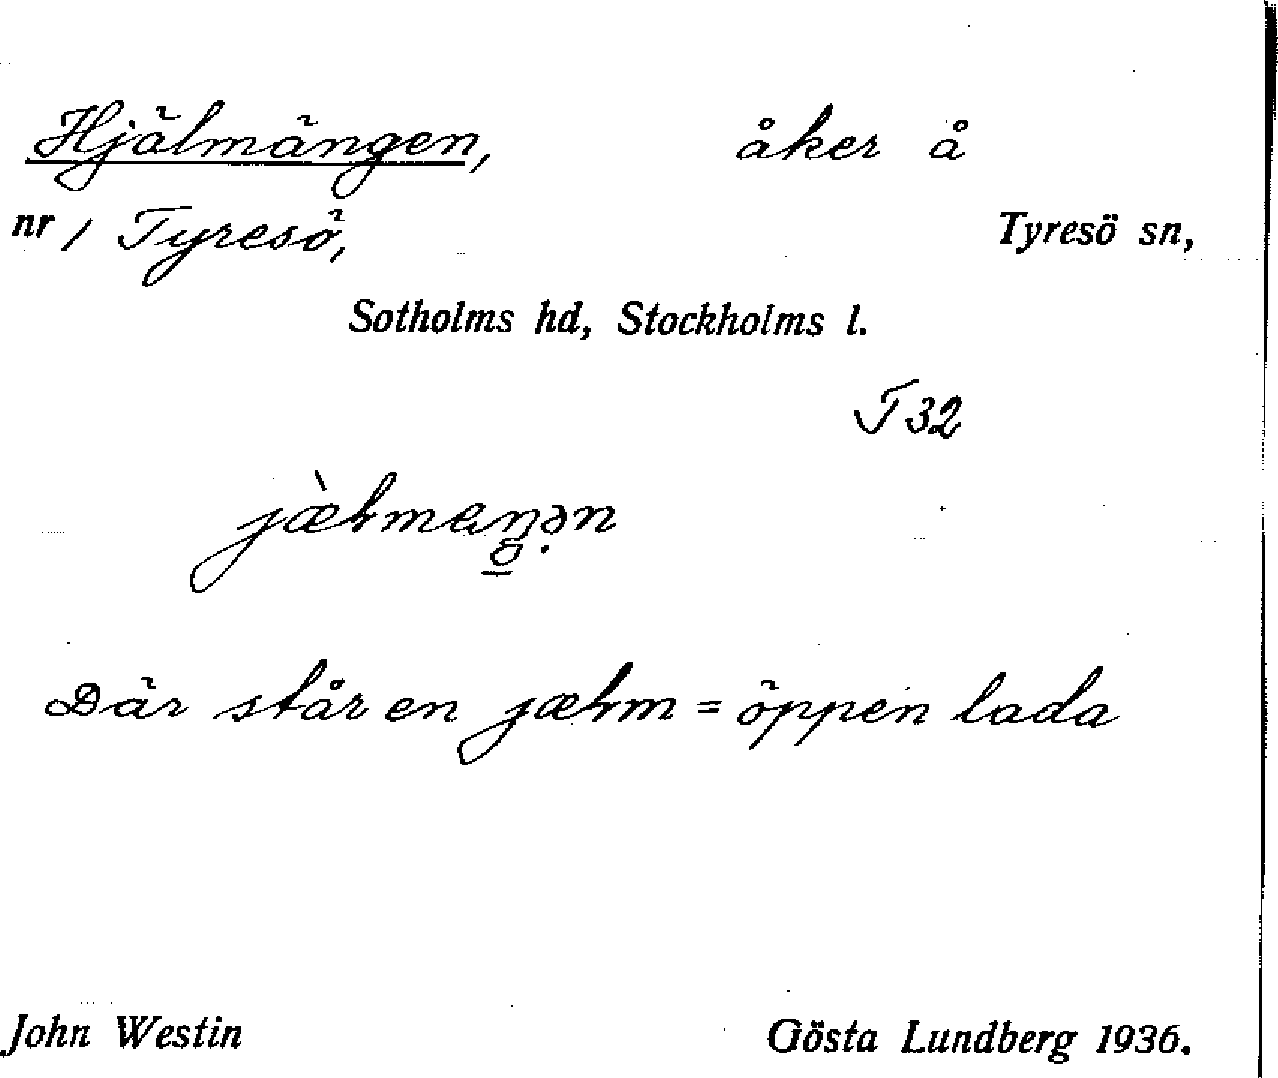 Hjälmängen, åker å
nr 1 Tyresö, Tyresö sn,
Sotholms hd, Stockholms l.
T 32
Där står en jælm = öppen lada
John Westin Gösta Lundberg 1936.